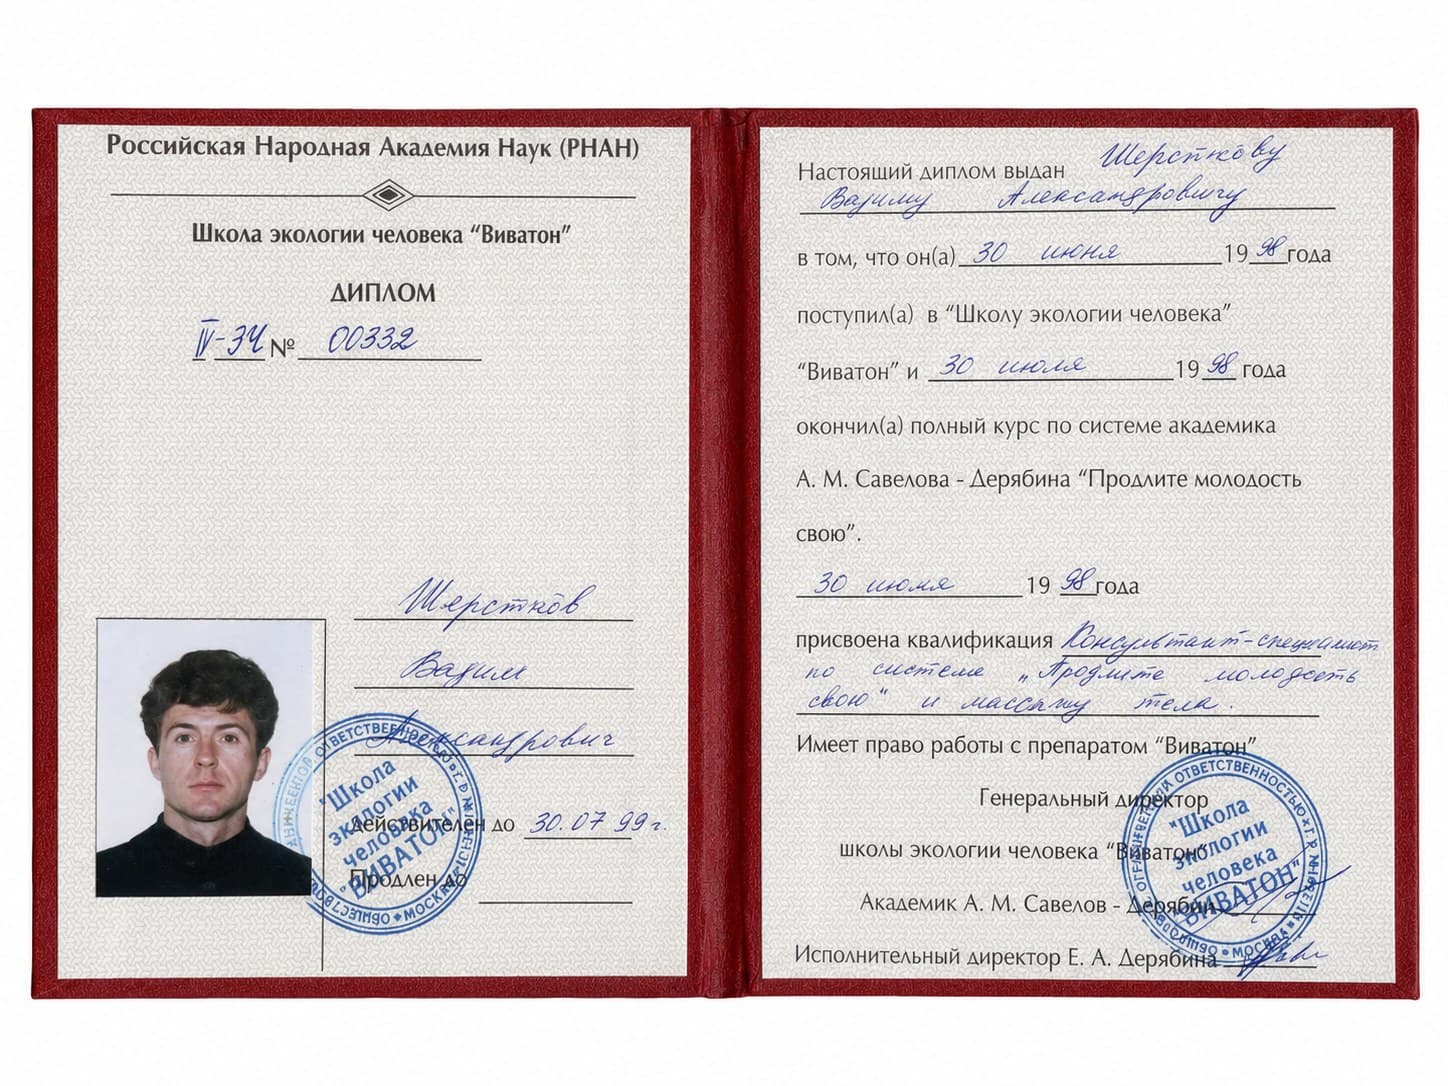 Российская Народная Академия Наук (РНАН)
Школа экологии человека “Виватон”
ДИПЛОМ
IV-ЭЧ № 00332
Шерстков
Вадим
Александрович
Действителен до 30.07 99 г.
Продлен до
"Школа
экологии
человека
"ВИВАТОН"
МОСКВА
Настоящий диплом выдан Шерсткову
Вадиму Александровичу
в том, что он(а) 30 июня 1998 года
поступил(а) в “Школу экологии человека”
“Виватон” и 30 июля 1998 года
окончил(а) полный курс по системе академика
А. М. Савелова - Дерябина “Продлите молодость
свою”.
30 июля 1998 года
присвоена квалификация Консультант-специалист
по системе „Продлите молодость
свою“ и массажу тела.
Имеет право работы с препаратом “Виватон”
Генеральный директор
школы экологии человека “Виватон”
Академик А. М. Савелов - Дерябин
Исполнительный директор Е. А. Дерябина
"Школа
экологии
человека
"ВИВАТОН"
МОСКВА